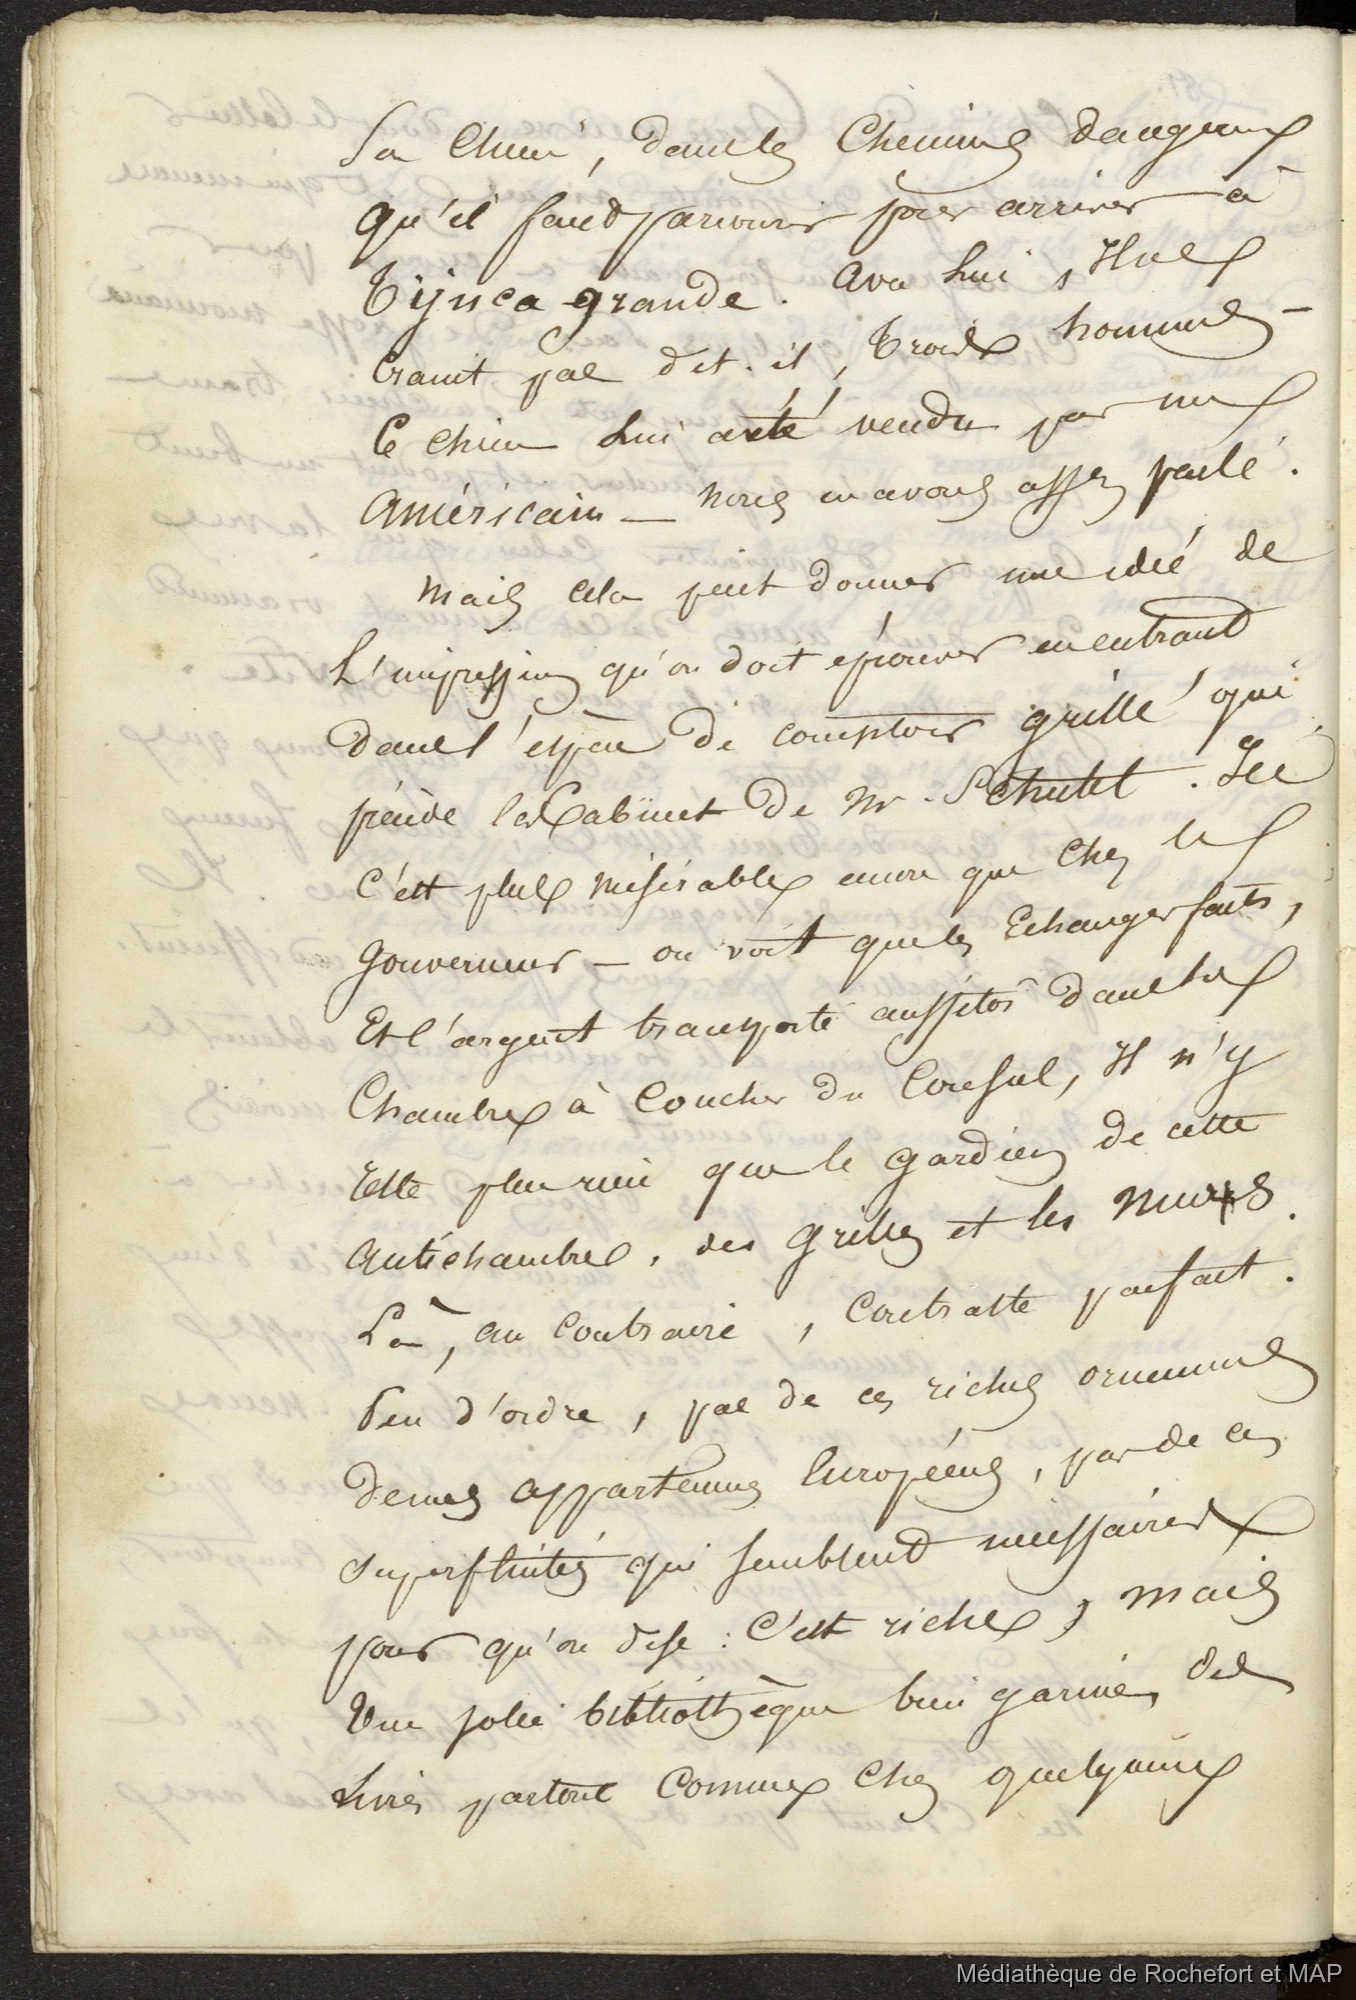 Son Chien, dans les Chemins dangereux
qu'il faut parcourir pour arriver à
Tijuca grande. Avec lui, Il ne
Craint pas dit-il, Trois hommes -
Ce chien lui a été vendu par un
Américain — nous en avons assez parlé.
Mais cela peut donner une idée de
L'impression qu'on doit éprouver en entrant
dans l'espèce de comptoir grillé qui
précède le Cabinet de Mr. Schutel. Ici
c'est plus misérable encore que chez le
Gouverneur — on voit que les Echanges faits,
Et l'argent transporté aussitôt dans la
Chambre à Coucher du Consul, Il n'y
reste plus rien que le gardien de cette
antichambre, des grilles et les murs.
Là, au Contraire, Contraste parfait.
Peu d'ordre, pas de ces riches ornemens
de nos appartemens Européens, pas de ces
superfluités qui semblent nécessaires
pour qu'on dise : C'est riche, mais
Une jolie bibliothèque bien garnie, des
Livres partout Comme Chez quelqu'un
Médiathèque de Rochefort et MAP